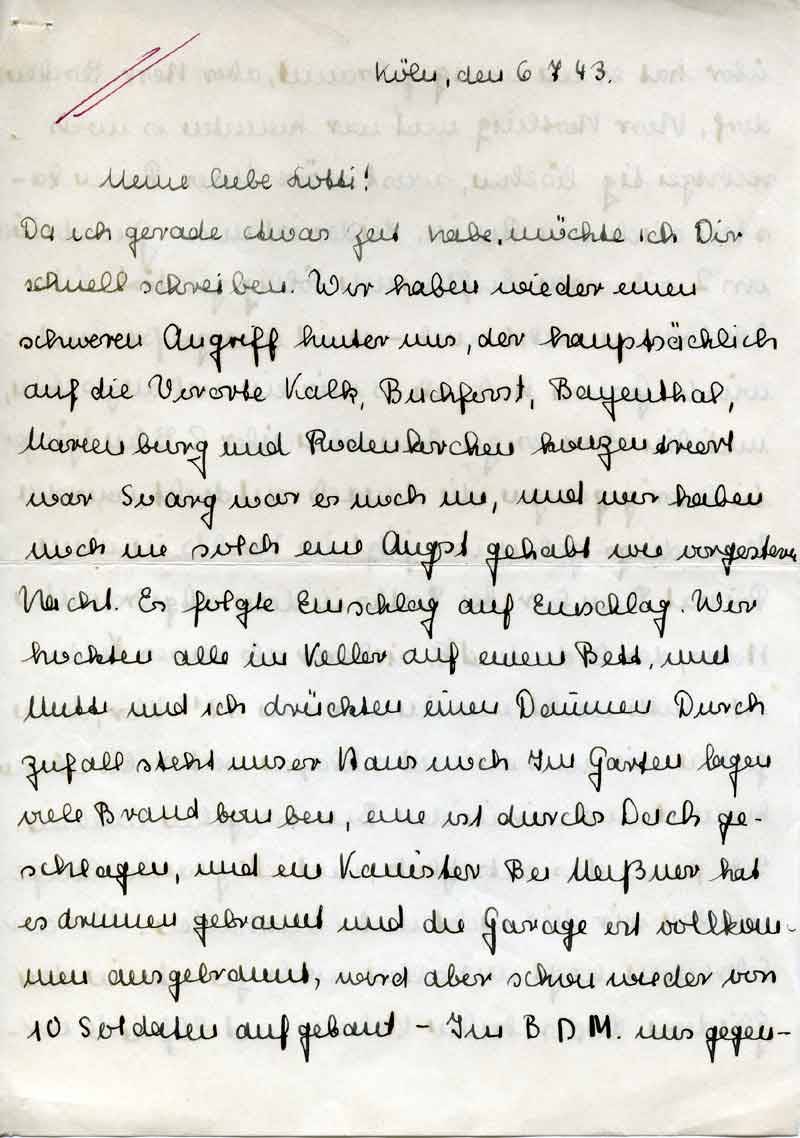 Köln, den 6 7 43.
Meine liebe Lotti!
Da ich gerade etwas Zeit habe, möchte ich Dir
schnell schreiben. Wir haben wieder einen
schweren Angriff hinter uns, der hauptsächlich
auf die Vororte Kalk, Buchforst, Bayenthal,
Marienburg und Rodenkirchen konzentriert
war So arg war es noch nie, und wir haben
noch nie solch eine Angst gehabt wie vorgestern
Nacht. Es folgte Einschlag auf Einschlag. Wir
hockten alle im Keller auf einem Bett, und
Mutti und ich drückten einen Daumen Durch
Zufall steht unser Haus noch Im Garten lagen
viele Brandbomben, eine ist durchs Dach ge-
schlagen, und ein Kanister Bei Meißner hat
es drinnen gebrannt und die Garage ist vollkom-
men ausgebrannt, wird aber schon wieder von
10 Soldaten aufgebaut - Im B D M. uns gegen-